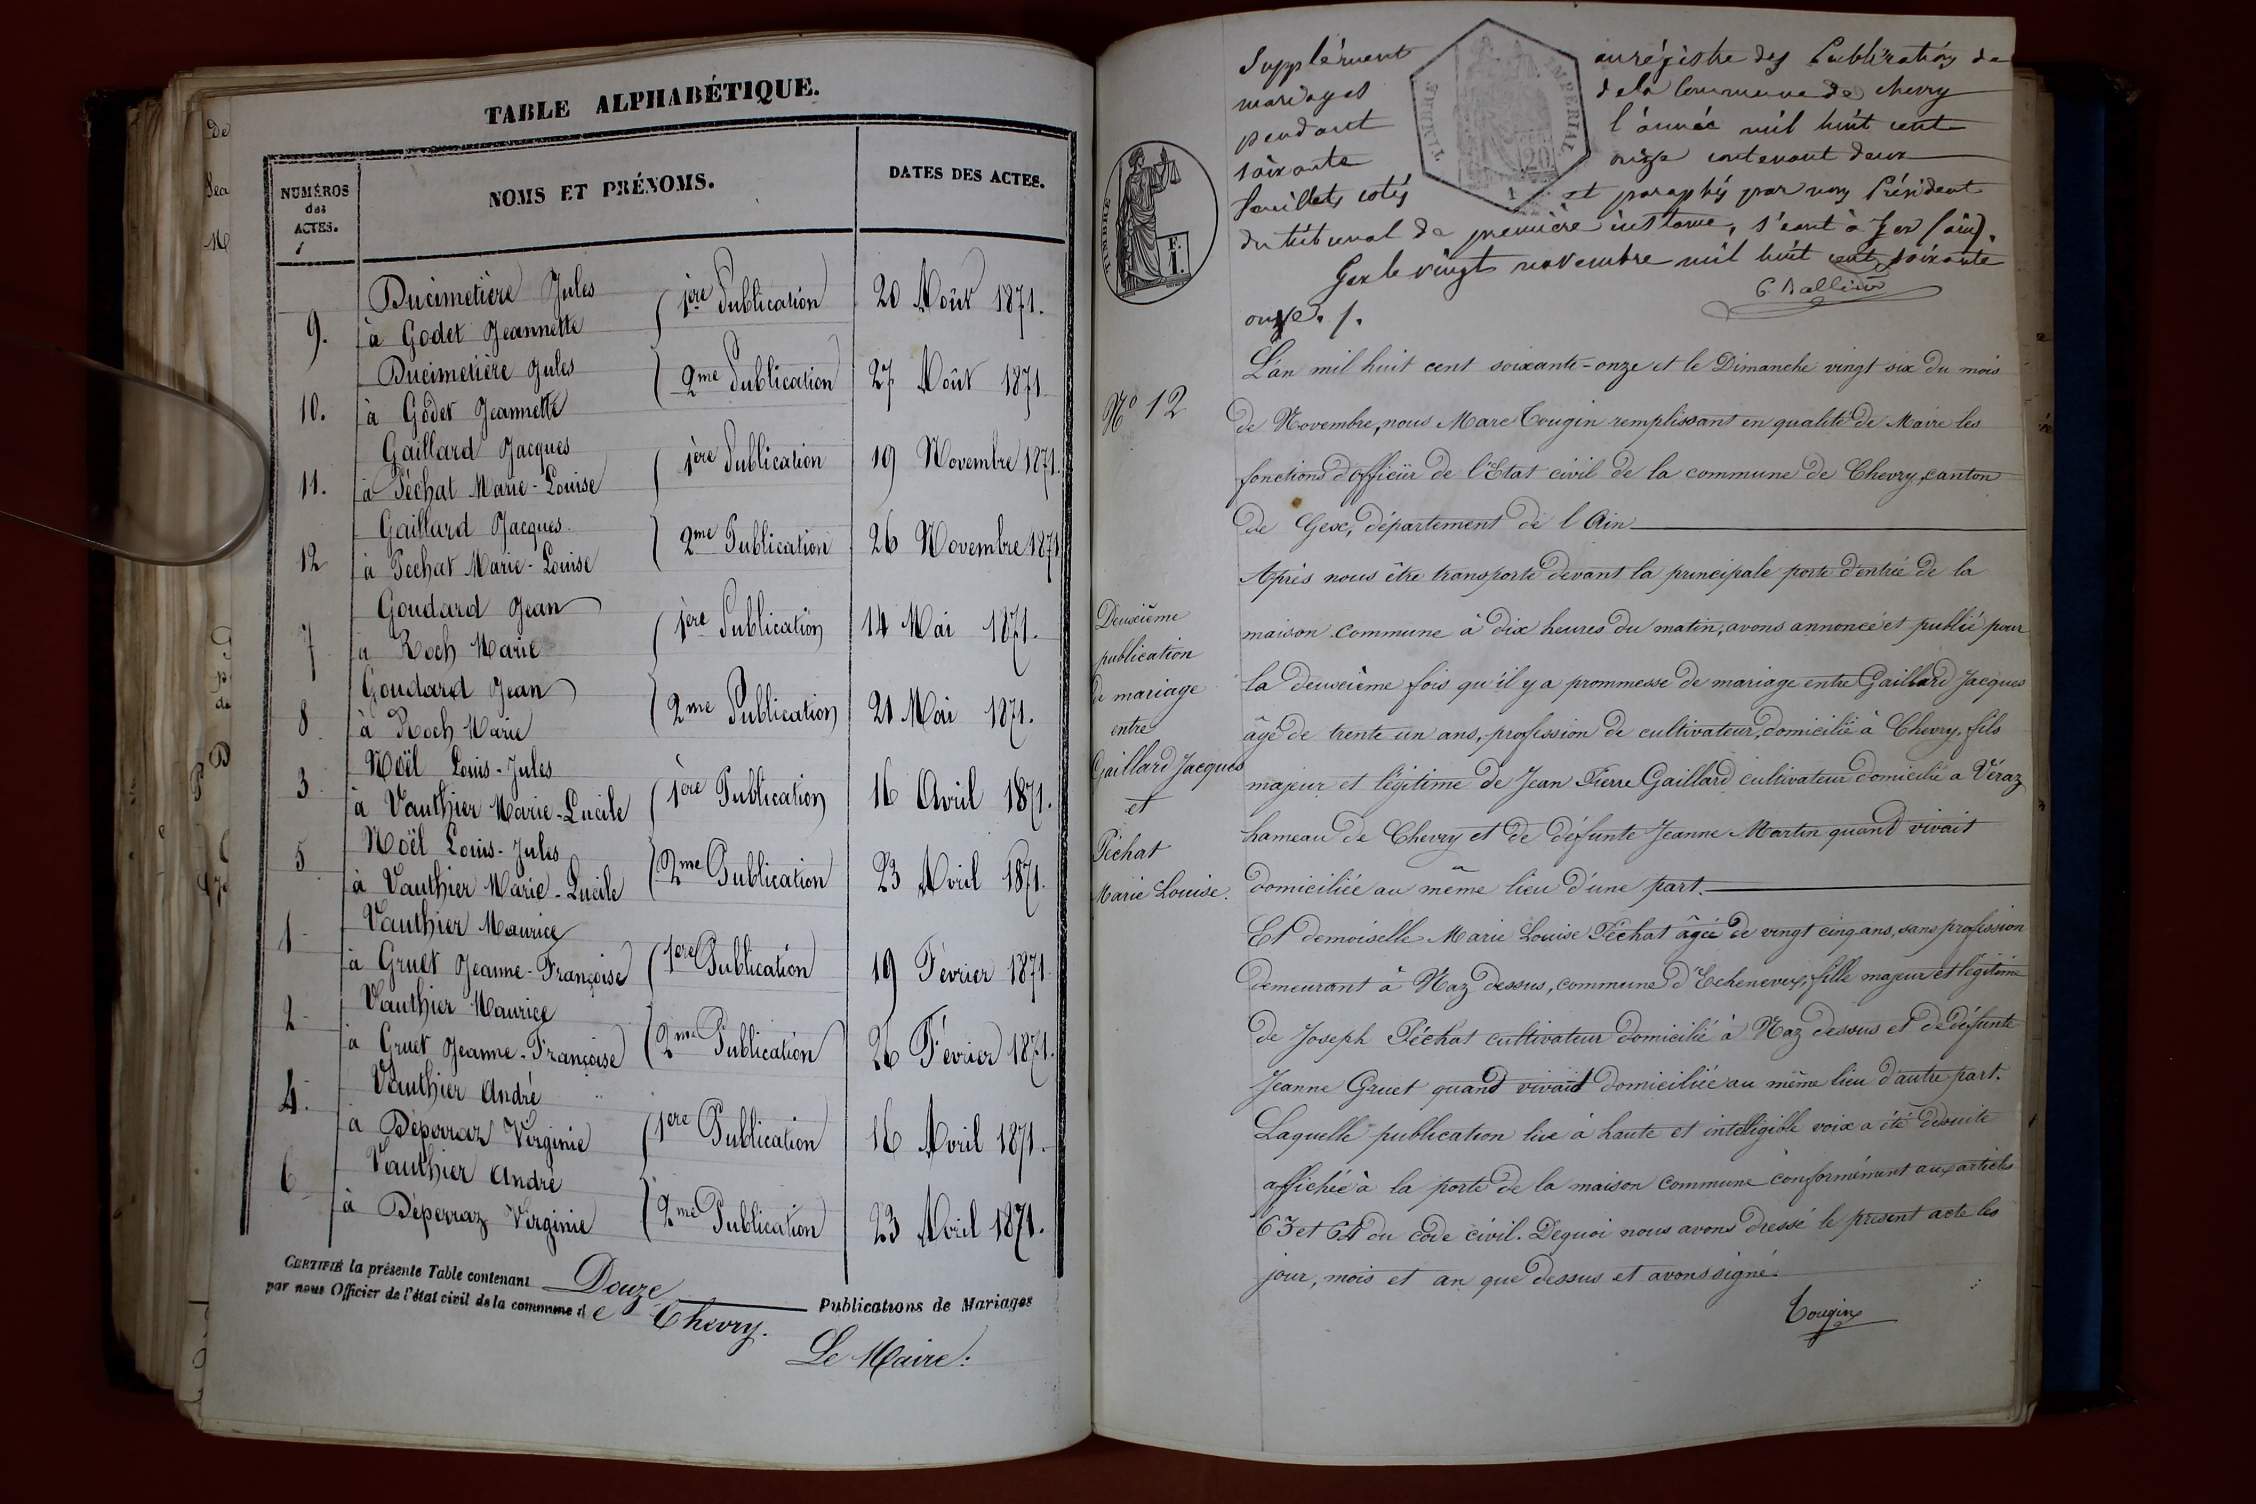 TABLE ALPHABÉTIQUE.
NUMÉROS des ACTES.
NOMS ET PRÉNOMS.
DATES DES ACTES.
Ducimetière Jules
9. à Godet Jeannette 1ère Publication 20 Août 1871.
Ducimetière Jules
10. à Godet Jeannette 2me Publication 27 Août 1871
Gaillard Jacques
11. à Péchat Marie-Louise 1ère Publication 19 Novembre 1871.
Gaillard Jacques
12 à Pechat Marie-Louise 2me Publication 26 Novembre 1871
Goudard Jean
7 à Roch Marie 1ère Publication 14 Mai 1871.
Goudard Jean
8 à Roch Marie 2me Publication 21 Mai 1871.
Noël Louis-Jules
3 à Vauthier Marie-Lucile 1ère Publication 16 Avril 1871.
Noël Louis-Jules
5 à Vauthier Marie-Lucile 2me Publication 23 Avril 1871.
Vauthier Maurice
1 à Gruet Jeanne-Françoise 1ere Publication 19 Février 1871
Vauthier Maurice
2 à Gruet Jeanne-Françoise 2me Publication 26 Février 1871.
Vauthier André
4. à Déperraz Virginie 1ere Publication 16 Avril 1871.
Vauthier André
6 à Déperraz Virginie 2me Publication 23 Avril 1871.
CERTIFIÉ la présente Table contenant Douze Publications de Mariages
par nous Officier de l'état civil de la commune de Chevry.
Le Maire:
Supplément au régistre des Publication de
mariages de la Commune de Chevry
pendant l'année mil huit cent
soixante onze contenant deux
feuillets cotés et paraphés par nous Président
du tribunal de première instance, séant à Gex (ain).
Gex le vingt novembre mil huit cent soixante
onze. /.
TIMBRE
IMPÉRIAL
20
1
F.
I.
N° 12
L'an mil huit cent soixante-onze et le Dimanche vingt six du mois
de Novembre, nous Marc Tougin remplissant en qualité de Maire les
fonctions d'officier de l'Etat civil de la commune de Chevry, canton
de Gex, département de l'Ain
Deuxième
publication
de mariage
entre
Gaillard Jacques
et
Péchat
Marie Louise.
Après nous être transporté devant la principale porte d'entrée de la
maison commune à dix heures du matin, avons annoncé et publié pour
la deuxième fois qu'il y a prommesse de mariage entre Gaillard Jacques
âgé de trente un ans, profession de cultivateur, domicilié à Chevry, fils
majeur et légitime de Jean Pierre Gaillard cultivateur domicilié a Véraz
hameau de Chevry et de défunte Jeanne Martin quand vivait
domiciliée au même lieu d'une part.
Et demoiselle Marie Louise Péchat âgée de vingt cinq ans, sans profession
demeurant à Naz dessus, commune d'Echenevex, fille majeur et légitime
de Joseph Péchat cultivateur domicilié à Naz dessus et de défunte
Jeanne Gruet quand vivait domiciliée au même lieu d'autre part.
Laquelle publication lue à haute et intelligible voix a été desuite
affichée à la porte de la maison commune conformément aux articles
63 et 64 du code civil. Dequoi nous avons dressé le présent acte les
jour, mois et an que dessus et avons signé.
Tougin